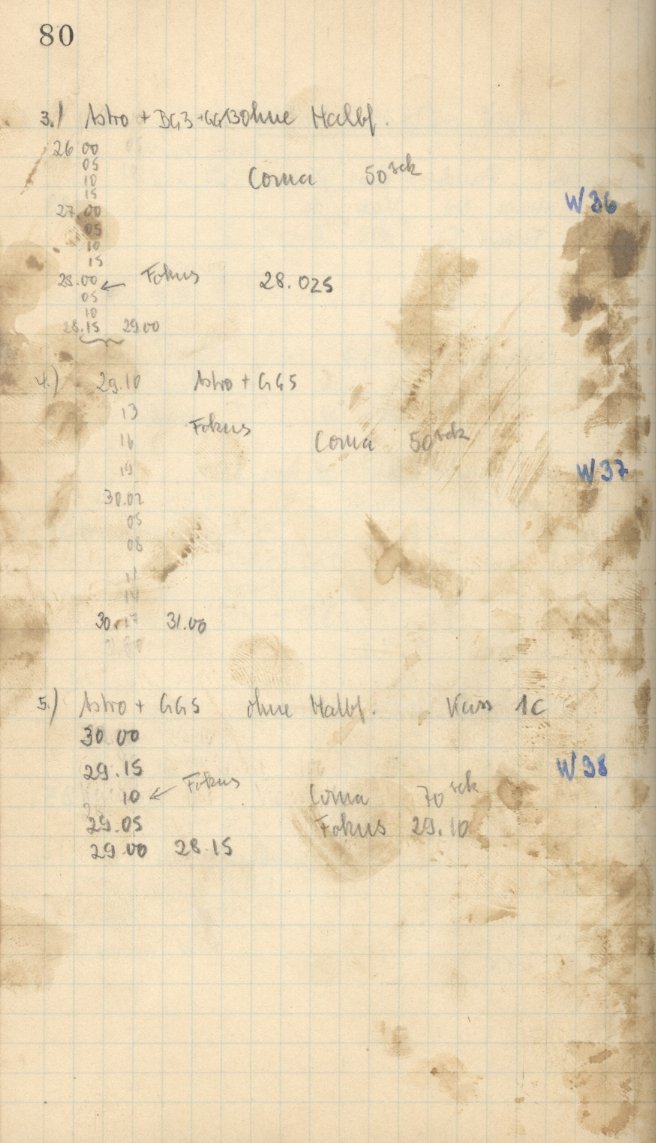 80
3.) Astro + BG3 + GG13 ohne Halbf.
26 00
05
10
15
Coma 50 sek
W 36
27 00
05
10
15
28.00 ← Fokus 28.025
05
10
28.15 29.00
4.) 29.10 Astro + GG5
13
Fokus
16 Coma 50 sek
19
W 37
30.02
05
08
11
14
30.17 31.00
5.) Astro + GG5 ohne Halbf. 1c
30.00
29.15
W 38
10 ← Fokus
Coma 70 sek
29.05 Fokus 29.10
29.00 28.15